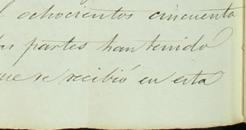 l ochocientos cincuenta
las partes han tenido
que se recibió en esta